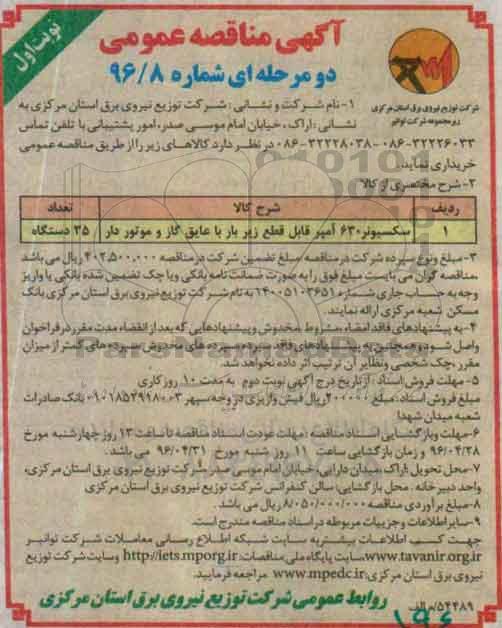 نوبت اول
آگهی مناقصه عمومی
دو مرحله ای شماره ۹۶/۸
شرکت توزیع نیروی برق استان مرکزی
زیرمجموعه شرکت توانیر
۱-نام شرکت و نشانی : شرکت توزیع نیروی برق استان مرکزی به
نشانی : اراک ، خیابان امام موسی صدر، امور پشتیبانی با تلفن تماس
۳۲۲۲۶۰۳۳-۰۸۶-۳۲۲۲۸۰۳۸-۰۸۶ در نظر دارد کالاهای زیر را از طریق مناقصه عمومی
خریداری نماید.
۲-شرح مختصری از کالا
ردیف شرح کالا تعداد
۱ سکسیونر ۶۳۰ آمپر قابل قطع زیر بار با عایق گاز و موتور دار ۳۵ دستگاه
۳-مبلغ ونوع سپرده شرکت در مناقصه مبلغ تضمین شرکت در مناقصه ۴۰۲,۵۰۰,۰۰۰ ریال می باشد
.مناقصه گران می بایست مبلغ فوق را به صورت ضمانت نامه بانکی ویا چک تضمین شده بانکی یا واریز
وجه به حساب جاری شماره ۱۴۰۰۵۱۰۳۶۵۱ به نام شرکت توزیع نیروی برق استان مرکزی بانک
مسکن شعبه مرکزی ارائه نمایند.
۴-به پیشنهادهای فاقد امضاء، مشروط، مخدوش وپیشنهادهایی که بعد از انقضاء مدت مقرر در فراخوان
واصل شود وهمچنین به پیشنهادهای فاقد سپرده، سپرده های مخدوش، سپرده های کمتر از میزان
مقرر، چک شخصی ونظایر آن ترتیب اثر داده نخواهد شد.
۵- مهلت فروش اسناد : از تاریخ درج آگهی نوبت دوم به مدت ۱۰ روز کاری
مبلغ فروش اسناد : مبلغ ۲۰۰۰۰۰ ریال فیش واریزی در وجه سپهر ۰۱۰۱۸۵۴۹۱۸۰۰۳ بانک صادرات
شعبه میدان شهدا
۶-مهلت وبازگشایی اسناد مناقصه : مهلت عودت اسناد مناقصه تا ساعت ۱۳ روز چهارشنبه مورخ
۹۶/۰۴/۲۸ و زمان بازگشایی ساعت ۱۱ روز شنبه مورخ ۹۶/۰۴/۳۱ می باشد .
۷-محل تحویل : اراک ،میدان دارایی، خیابان امام موسی صدر، شرکت توزیع نیروی برق استان مرکزی،
واحد دبیرخانه . محل بازگشایی: سالن کنفرانس شرکت توزیع نیروی برق استان مرکزی
۸-مبلغ برآوردی مناقصه ۸/۰۵۰/۰۰۰/۰۰۰ ریال می باشد .
۹-سایر اطلاعات و جزییات مربوطه در اسناد مناقصه مندرج است.
جهت کسب اطلاعات بیشتر به سایت شبکه اطلاع رسانی معاملات شرکت توانیر
www.tavanir.org.ir سایت پایگاه ملی مناقصات: http://iets.mporg.ir وسایت شرکت توزیع
نیروی برق استان مرکزی: www.mpedc.ir مراجعه فرمایید.
۵۴۴۸۹/م الف
روابط عمومی شرکت توزیع نیروی برق استان مرکزی